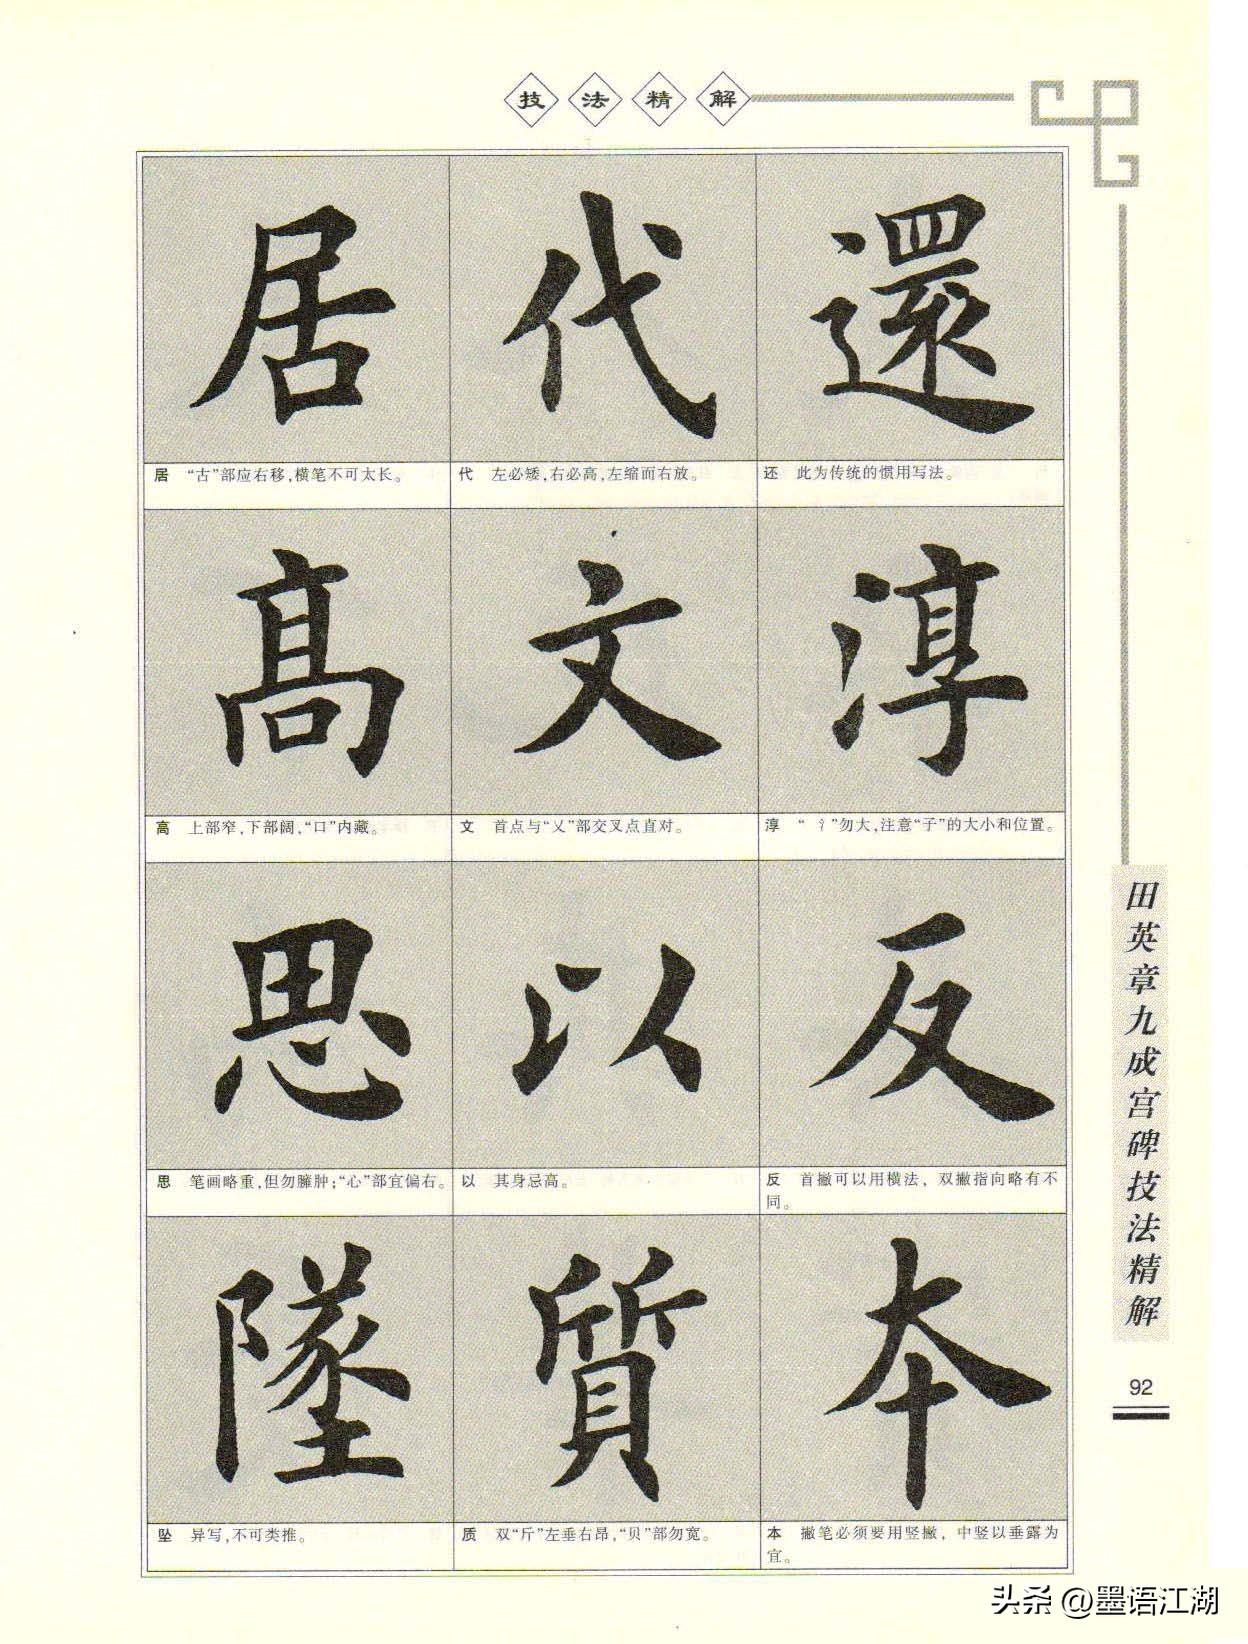 技法精解
居 代 還
居 “古”部应右移,横笔不可太长。
代 左必矮,右必高,左缩而右放。
还 此为传统的惯用写法。
高 文 淳
高 上部窄,下部阔,“口”内藏。
文 首点与“乂”部交叉点直对。
淳 “氵”勿大,注意“子”的大小和位置。
思 以 反
思 笔画略重,但勿臃肿;“心”部宜偏右。
以 其身忌高。
反 首撇可以用横法，双撇指向略有不
同。
墜 質 本
坠 异写,不可类推。
质 双“斤”左垂右昂,“贝”部勿宽。
本 撇笔必须要用竖撇，中竖以垂露为
宜。
田英章九成宫碑技法精解
92
头条 @墨语江湖